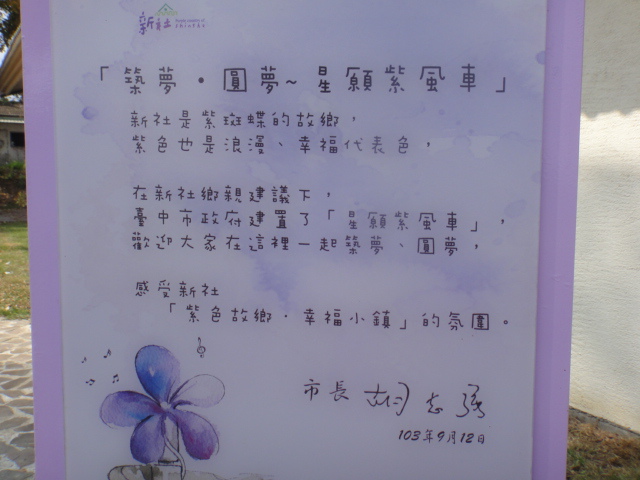 新社
「築夢・圓夢~星願紫風車」
新社是紫斑蝶的故鄉，
紫色也是浪漫、幸福代表色，
在新社鄉親建議下，
臺中市政府建置了「星願紫風車」，
歡迎大家在這裡一起築夢、圓夢，
感受新社
「紫色故鄉・幸福小鎮」的氛圍。
市長 胡志強
103年9月12日